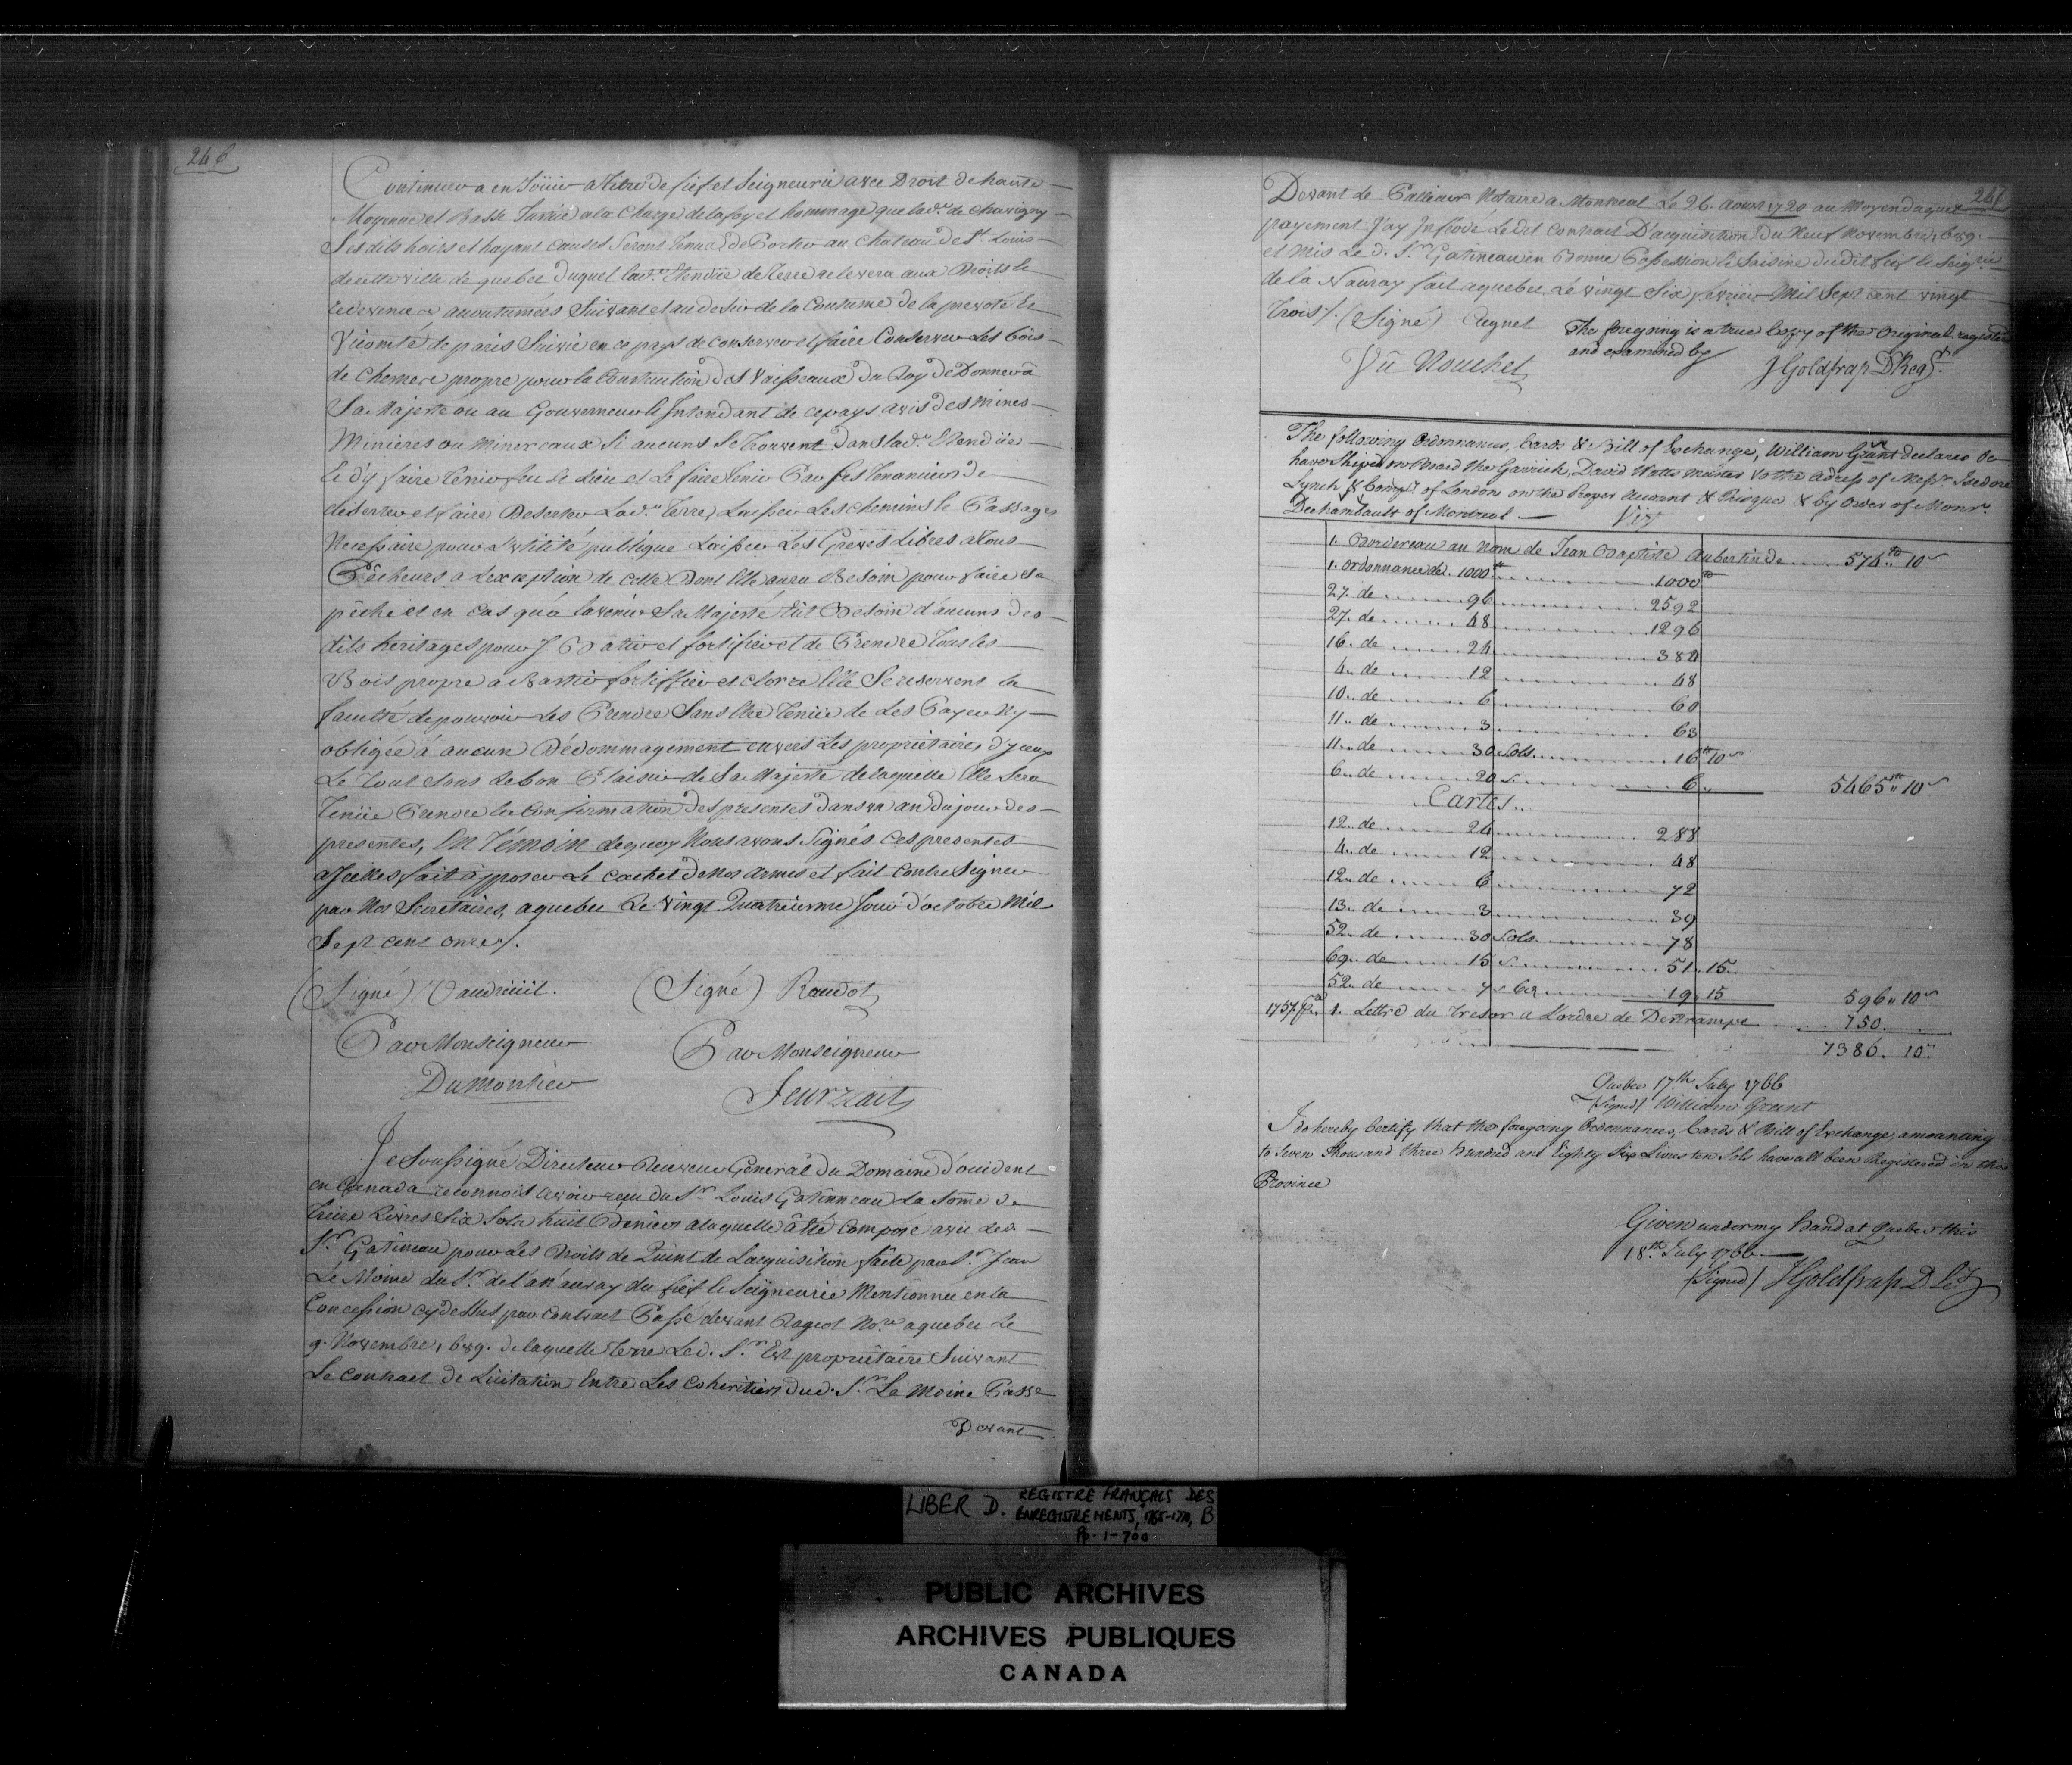 246
Continuer a en Joüir a titre de fief et Seigneurie avec Droit de haute
Moyenne et Basse Justice a la Charge de la foy et hommage que lad.e de Chavigny
Ses dits hoirs et hayant causes Seront Tenus de Porter au Chateau de St. Louis
de cette ville de quebec duquel lad.e Etendüe de Terre relevera aux Droits Et
redevences acoutumées Suivant et au desir de la Coutume de la prevoté Et
Vicomté de paris Suivie en ce pays de conserver et faire Conserver Les bois
de Chesne propre pour la Construction des Vaisseaux du Roy de Donner a
Sa Majesté ou au Gouverneur Et Intendant de ce pays avis des mines
Minieres ou Minereaux Si aucuns Se Trouvent Dans lad.e Etendüe
Et d'y faire Tenir feu Et Lieu et Le faire Tenir Par Ses Tenanciers de
deserter et faire Deserter Lad.e Terre, Laisser Les chemins Et Passages
Necessaire pour L'utilité publique Laisser Les Greves Libres a Tous
Pêcheurs a L'exception de celle Dont Elle aura Besoin pour faire Sa
pêche et en cas qu'a l'avenir Sa Majesté Eût Besoin d'aucuns des
dits heritages pour J Batir et fortifier et de Prendre Tous les
Bois propre a Batir fortiffier et clorre Elle Se reservent la
faculté de pouvoir Les Prendre Sans Etre Tenüe de Les Payer Ny
obligée à aucun Dédommagement envers Les proprietaires d'yceux
Le Tout Sous Le bon Plaisir de Sa Majesté de laquelle Elle Sera
Tenüe Prendre la Confirmation des presentes dans un an du jour des
presentes, En Témoin dequoy Nous avons Signés ces presentes
a Jcelles fait apposer Le cachet de Nos armes et fait Contre Signer
par Nos Secretaires, a quebec Le Vingt Quatrieme Jour d'octobre Mil
Sept cent onze /.
(Signé) Vaudreüil. (Signé) Raudot
Par Monseigneur Par Monseigneur
Dumontier
Je Soussigné Directeur Receveur General du Domaine d'occident
en Canada reconnois avoir reçu du Sr. Louis Gatinneau La Some de
Treize Livres Six Sols huit Deniers a laquelle a Eté Composé avec led.
Sr. Gatineau pour Les Droits de Quint de L'acquisition faite par Sr. Jean
Le Moine du Sr. de La Nauray du fief Et Seigneurie Mentionnée en la
Concession cy dessus par Contract Passé devant Rageot No.re a quebec Le
9. Novembre 1689. de laquelle Terre Led. Sr. Est proprietaire Suivant
Le Contract de Licitation Entre Les Coheritiers dud. Sr. Le Moine Passe
Devant
247
Devant Le Pallieur Notaire a Montreal Le 26. aoust 1720 au Moyen duquel
payement J'ay Inféodé Le dit Contract D'acquisition du Neuf Novembre 1689.
et Mis Le d. Sr. Gatineau en Bonne Possession Et Saisine dudit fief Et Seig.rie
de la Nauray fait a quebec Le Vingt Six fevrier Mil Sept cent vingt
Trois /. (Signé) Cugnet The foregoing is a true Copy of the Original registered
and examined by
Vü Nouchet JGoldfrap D Reg.r
The following Ordonnances, Cards & Bill of Exchange, William Grant declares to
have Shiped on Board the Garrick, David Watts master to the adress of Messrs. Isedore
Lynch & Comp.y of London on the Proper account & Risque & by order of Monsr.
Deschambault of Montreal Viz
1. Bordereau au nom de Jean Baptiste Aubertin de 574tt. 10s
1. Ordonnance de 1000tt 1000tt
27. de 96 2592
27. de 48 1296
16. de 24 384
4. de 12 48
10. de 6 60
11. de 3 63
11. de 30 Sols 16tt 10s
6. de 20 s 6. 5465tt 10s
Cartes.
12. de 24 288
4. de 12 48
12. de 6 72
13. de 3 39
52. de 30 Sols 78
69. de 15 s 51. 15.
52. de 7 s 6d 19. 15 596" 10s
1757 1. Lettre du Tresor a L'ordre de 750.
7386. 10s
Quebec 17th July 1766
(Signed) William Grant
I do hereby Certify that the foregoing Ordonnances, Cards & Bill of Exchange, amounting
to Seven thousand three hundred and Eighty Six Livres ten Sols have all been Registered in this
Province
Given under my hand at Quebec this
18th July 1766
(Signed) JGoldfrap D
LIBER D. REGISTRE FRANÇAIS DES
ENREGISTREMENTS, 1765-1770, B
Pp. 1-700
PUBLIC ARCHIVES
ARCHIVES PUBLIQUES
CANADA